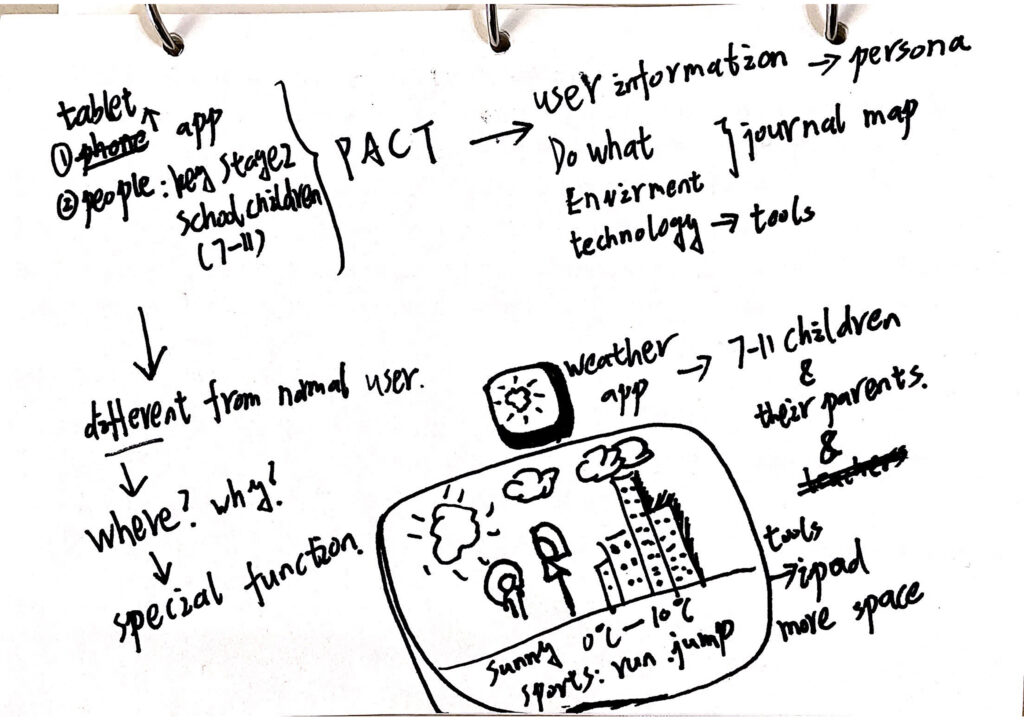 tablet
① phone app
② people: key stage2
school children
(7-11)
PACT
user information → persona
Do what
Envirment
journal map
technology → tools
different from normal user.
where? why?
special function.
weather
app
7-11 children
&
their parents.
&
teachers
sunny 0°C-10°C
sports: run .jump
tools
ipad
more space